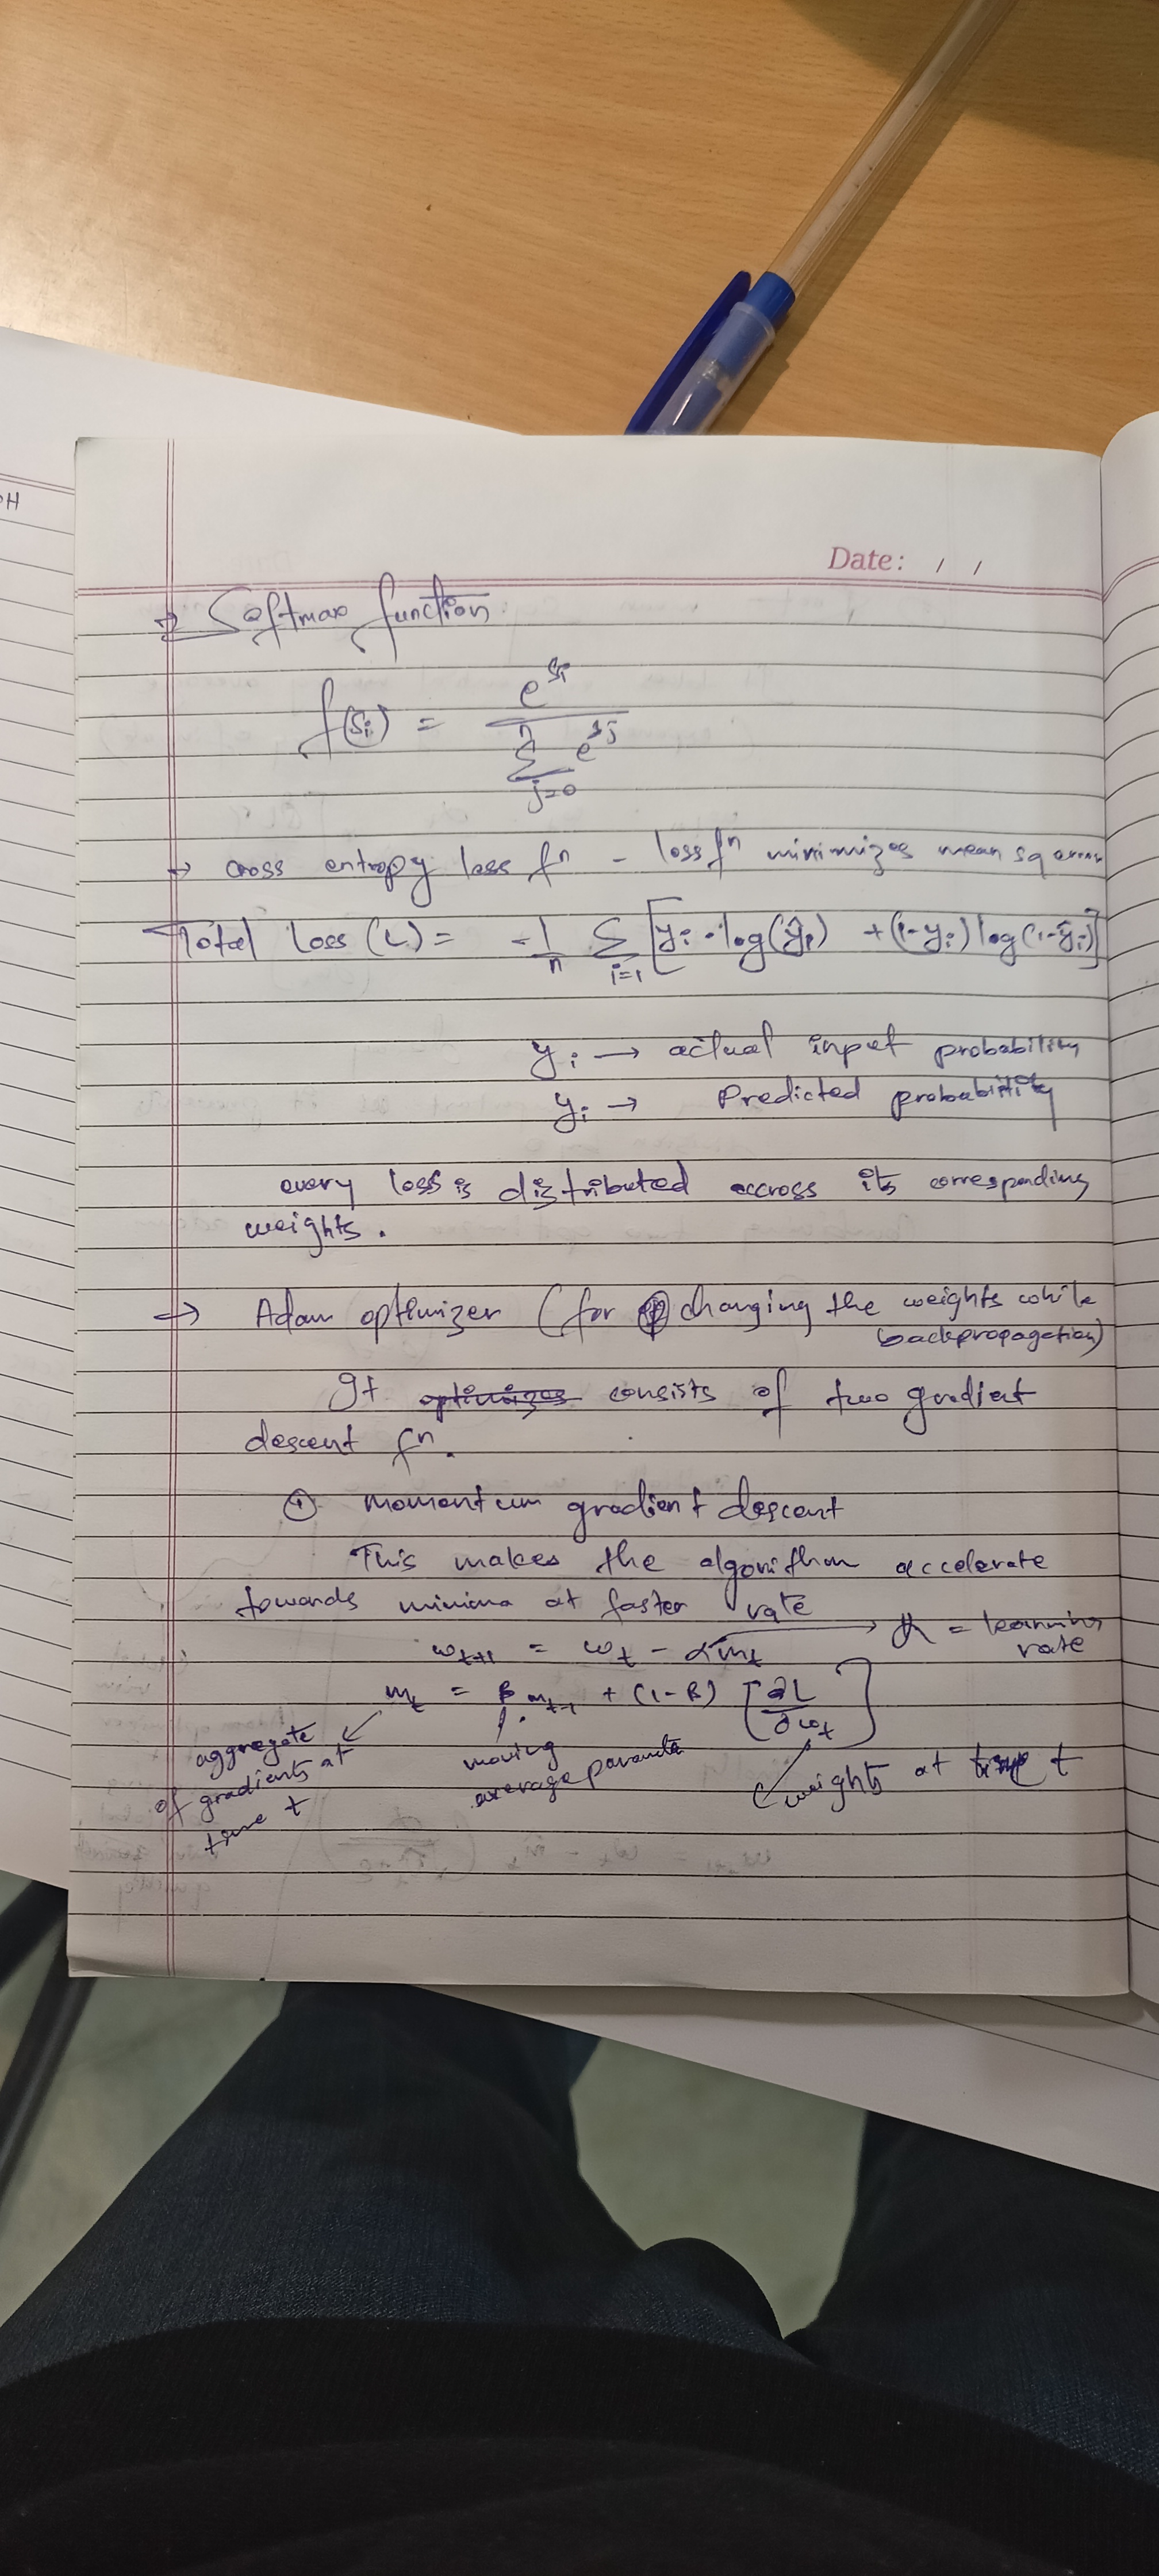 Date: / /
→ Softmax function
f(Si) = e^Si / n Σ j=0 e^Sj
→ cross entropy loss fn - loss fn minimizes mean sq error
Total Loss (L) = -1/n Σ i=1 [yi · log(ŷi) + (1-yi) log(1-ŷi)]
yi → actual input probability
yi → Predicted probability
every loss is distributed accross its corresponding
weights.
→ Adam optimizer (for changing the weights while
backpropagation)
It optimizes consists of two gradient
descent fn.
① momentum gradient descent
This makes the algorithm accelerate
towards minima at faster rate
wt+1 = wt - αmt → α = learning
rate
mt = β mt-1 + (1-β) [∂L/∂wt]
aggregate
of gradients at
time t
moving
average parameter
weights at time t